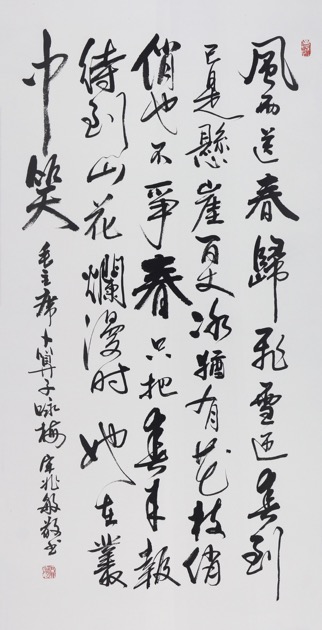 風雨送春歸飛雪迎春到
已是懸崖百丈冰猶有花枝俏
俏也不爭春只把春来報
待到山花爛漫时她在叢
中笑
毛主席卜算子咏梅